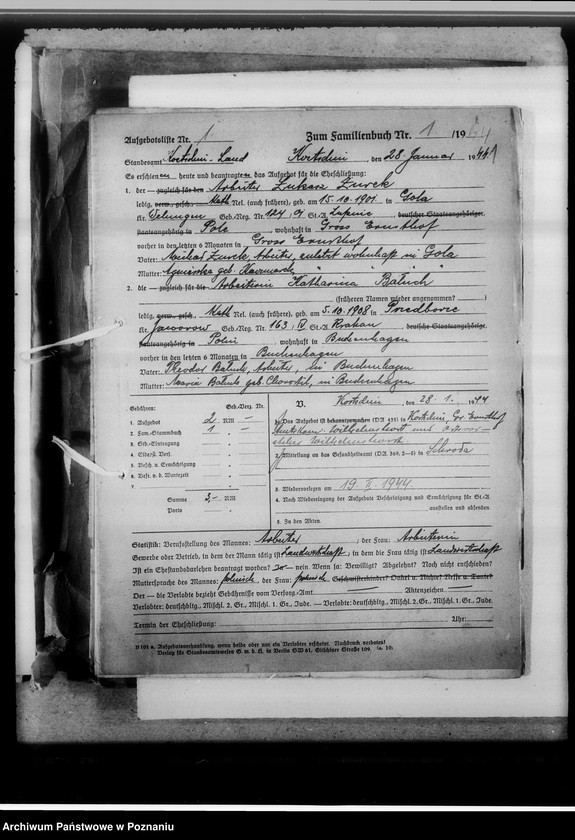 Aufgebotsliste Nr. 1 Zum Familienbuch Nr. 1 /1944
Standesamt Kostschin-Land Kostschin, den 28 Januar 1944
Es erschienen heute und beantragten das Aufgebot für die Eheschließung:
1. der zugleich für den Arbeiter Lukasz Zurek
ledig, verw., gesch., Kath Rel. (auch frühere), geb. am 15.10.1901 in Gola
Kr. Geb.-Reg. Nr. 124, St.A. deutscher Staatsangehöriger,
staatsangehörig in Pole, wohnhaft in Gross Ernsthof
vorher in den letzten 6 Monaten in Gross Ernsthof
Vater: Michael Zurek, Arbeiter, zuletzt wohnhaft in Gola
Mutter: Agnieszka geb. " " "
2. die zugleich für die Arbeiterin Katharina Batuch
(früheren Namen wieder angenommen? )
ledig, verw., gesch., Kath Rel. (auch frühere), geb. am 5.10.1908 in Przedborze
Kr. Jaworow Geb.-Reg. Nr. 163, IV St.A. Krakau, deutsche Staatsangehörige,
staatsangehörig in Polin, wohnhaft in Buchenhagen
vorher in den letzten 6 Monaten in Buchenhagen
Vater: Theodor Batuch, Arbeiter, in Buchenhagen
Mutter: Maria Batuch geb. in Buchenhagen
Gebühren: Geb.-Verz. Nr.
1. Aufgebot 2 RM —
2. Fam.-Stammbuch 1 " —
3. Geb.-Eintragung "
4. Eidesst. Vers. "
5. Besch. u. Ermächtigung "
6. Befr. v. d. Wartezeit "
7. "
Summe 3,- RM
Porto "
V. Kostschin, den 28. 1. 1944
1. Das Aufgebot ist bekanntzumachen (DA 435) in Kostschin, Gr. Ernsthof
Amtskom. Wilhelmshorst und
Wilhelmshorst
2. Mitteilung an das Gesundheitsamt (DA. 369, 2—6) in Schroda
3. Wiedervorlegen am 19. II. 1944.
4. Nach Niederlegung der Aufgebote Bescheinigung und Ermächtigung für St.A.
ausstellen und absenden.
5. Zu den Akten.
Statistik: Berufsstellung des Mannes: Arbeiter; der Frau: Arbeiterin
Gewerbe oder Betrieb, in dem der Mann tätig ist Landwirtschaft; in dem die Frau tätig ist Landwirtschaft
Ist ein Ehestandsdarlehen beantragt worden? Ja — nein Wenn ja: Bewilligt? Abgelehnt? Noch nicht entschieden?
Muttersprache des Mannes: polnisch, der Frau: polnisch Geschwisterkinder? Onkel u. Nichte? Neffe u. Tante?
Der — die Verlobte bezieht Gebührnisse vom Versorg.-Amt Aktenzeichen
Verlobter: deutschblg., Mischl. 2. Gr., Mischl. 1. Gr., Jude. — Verlobte: deutschblg., Mischl. 2. Gr., Mischl. 1. Gr., Jude.
Termin der Eheschließung: Uhr:
B 101 a. Aufgebotsverhandlung, wenn beide oder nur ein Verlobter erscheint. Nachdruck verboten!
Verlag für Standesamtswesen G. m. b. H. in Berlin SW 61, Gitschiner Straße 109. (a. 10)
Archiwum Państwowe w Poznaniu